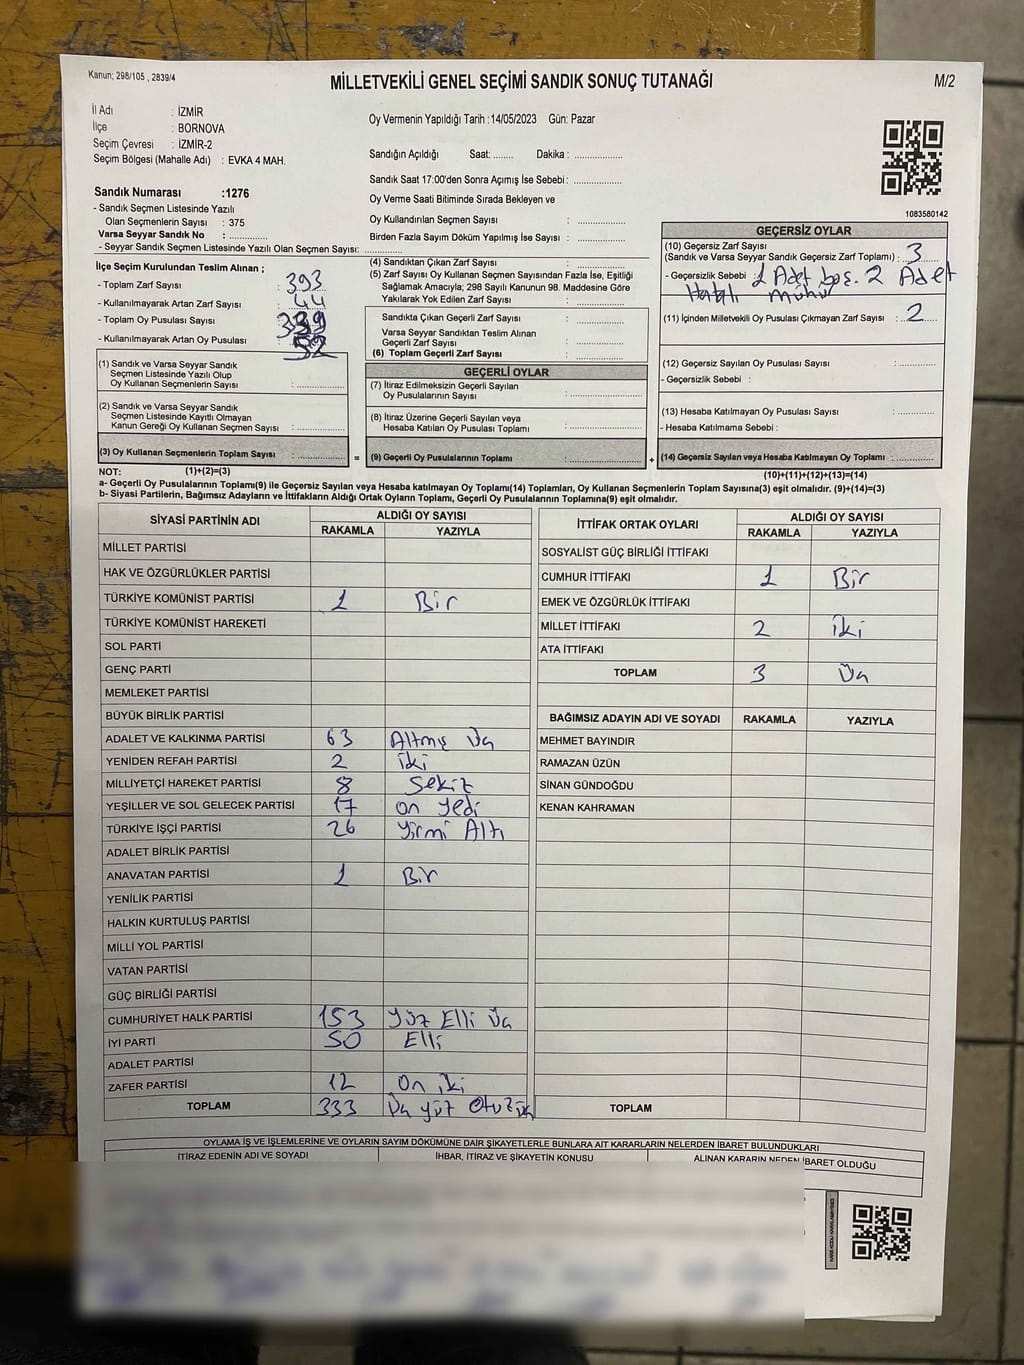 Kanun; 298/105 , 2839/4
MİLLETVEKİLİ GENEL SEÇİMİ SANDIK SONUÇ TUTANAĞI
M/2
İl Adı : İZMİR
İlçe : BORNOVA
Seçim Çevresi : İZMİR-2
Seçim Bölgesi (Mahalle Adı) : EVKA 4 MAH.
Oy Vermenin Yapıldığı Tarih :14/05/2023 Gün: Pazar
Sandığın Açıldığı Saat: ........ Dakika : ...................
Sandık Saat 17:00'den Sonra Açımış İse Sebebi: ...................
Oy Verme Saati Bitiminde Sırada Bekleyen ve
Oy Kullandırılan Seçmen Sayısı : ...................
Birden Fazla Sayım Döküm Yapılmış İse Sayısı : ...................
1083580142
Sandık Numarası :1276
- Sandık Seçmen Listesinde Yazılı
Olan Seçmenlerin Sayısı : 375
Varsa Seyyar Sandık No : ...............
- Seyyar Sandık Seçmen Listesinde Yazılı Olan Seçmen Sayısı: ...............
İlçe Seçim Kurulundan Teslim Alınan ;
- Toplam Zarf Sayısı : 393
- Kullanılmayarak Artan Zarf Sayısı : 44
- Toplam Oy Pusulası Sayısı :
- Kullanılmayarak Artan Oy Pusulası : 52
(1) Sandık ve Varsa Seyyar Sandık
Seçmen Listesinde Yazılı Olup
Oy Kullanan Seçmenlerin Sayısı : ...............
(2) Sandık ve Varsa Seyyar Sandık
Seçmen Listesinde Kayıtlı Olmayan
Kanun Gereği Oy Kullanan Seçmen Sayısı : ...............
(3) Oy Kullanan Seçmenlerin Toplam Sayısı : ...............
(4) Sandıktan Çıkan Zarf Sayısı : ...............
(5) Zarf Sayısı Oy Kullanan Seçmen Sayısından Fazla İse, Eşitliği
Sağlamak Amacıyla; 298 Sayılı Kanunun 98. Maddesine Göre
Yakılarak Yok Edilen Zarf Sayısı : ...............
Sandıkta Çıkan Geçerli Zarf Sayısı : ...............
Varsa Seyyar Sandıktan Teslim Alınan
Geçerli Zarf Sayısı : ...............
(6) Toplam Geçerli Zarf Sayısı : ...............
GEÇERLİ OYLAR
(7) İtiraz Edilmeksizin Geçerli Sayılan
Oy Pusulalarının Sayısı : ...............
(8) İtiraz Üzerine Geçerli Sayılan veya
Hesaba Katılan Oy Pusulası Toplamı : ...............
= (9) Geçerli Oy Pusulalarının Toplamı : ............... +
GEÇERSİZ OYLAR
(10) Geçersiz Zarf Sayısı
(Sandık ve Varsa Seyyar Sandık Geçersiz Zarf Toplamı) : 3
- Geçersizlik Sebebi : 1 Adet boş. 2 Adet
Hatalı mühür
(11) İçinden Milletvekili Oy Pusulası Çıkmayan Zarf Sayısı : 2
(12) Geçersiz Sayılan Oy Pusulası Sayısı : ...............
- Geçersizlik Sebebi :
(13) Hesaba Katılmayan Oy Pusulası Sayısı : ...............
- Hesaba Katılmama Sebebi :
(14) Geçersiz Sayılan veya Hesaba Katılmayan Oy Toplamı : ...............
NOT: (1)+(2)=(3)
(10)+(11)+(12)+(13)=(14)
a- Geçerli Oy Pusulalarının Toplamı(9) ile Geçersiz Sayılan veya Hesaba katılmayan Oy Toplam(14) Toplamları, Oy Kullanan Seçmenlerin Toplam Sayısına(3) eşit olmalıdır. (9)+(14)=(3)
b- Siyasi Partilerin, Bağımsız Adayların ve İttifakların Aldığı Ortak Oyların Toplam, Geçerli Oy Pusulalarının Toplamına(9) eşit olmalıdır.
SİYASİ PARTİNİN ADI ALDIĞI OY SAYISI
RAKAMLA YAZIYLA
MİLLET PARTİSİ
HAK VE ÖZGÜRLÜKLER PARTİSİ
TÜRKİYE KOMÜNİST PARTİSİ 1 Bir
TÜRKİYE KOMÜNİST HAREKETİ
SOL PARTİ
GENÇ PARTİ
MEMLEKET PARTİSİ
BÜYÜK BİRLİK PARTİSİ
ADALET VE KALKINMA PARTİSİ 63 Altmış Üç
YENİDEN REFAH PARTİSİ 2 iki
MİLLİYETÇİ HAREKET PARTİSİ 8 Sekiz
YEŞİLLER VE SOL GELECEK PARTİSİ 17 on yedi
TÜRKİYE İŞÇİ PARTİSİ 26 Yirmi Altı
ADALET BİRLİK PARTİSİ
ANAVATAN PARTİSİ 1 Bir
YENİLİK PARTİSİ
HALKIN KURTULUŞ PARTİSİ
MİLLİ YOL PARTİSİ
VATAN PARTİSİ
GÜÇ BİRLİĞİ PARTİSİ
CUMHURİYET HALK PARTİSİ 153 Yüz Elli Üç
İYİ PARTİ 50 Elli
ADALET PARTİSİ
ZAFER PARTİSİ 12 On iki
TOPLAM 333 Üç yüz Otuz üç
İTTİFAK ORTAK OYLARI ALDIĞI OY SAYISI
RAKAMLA YAZIYLA
SOSYALİST GÜÇ BİRLİĞİ İTTİFAKI
CUMHUR İTTİFAKI 1 Bir
EMEK VE ÖZGÜRLÜK İTTİFAKI
MİLLET İTTİFAKI 2 iki
ATA İTTİFAKI
TOPLAM 3 Üç
BAĞIMSIZ ADAYIN ADI VE SOYADI RAKAMLA YAZIYLA
MEHMET BAYINDIR
RAMAZAN ÜZÜN
SİNAN GÜNDOĞDU
KENAN KAHRAMAN
TOPLAM
OYLAMA İŞ VE İŞLEMLERİNE VE OYLARIN SAYIM DÖKÜMÜNE DAİR ŞİKAYETLERLE BUNLARA AİT KARARLARIN NELERDEN İBARET BULUNDUKLARI
İTİRAZ EDENİN ADI VE SOYADI İHBAR, İTİRAZ VE ŞİKAYETİN KONUSU ALINAN KARARIN NEDEN İBARET OLDUĞU